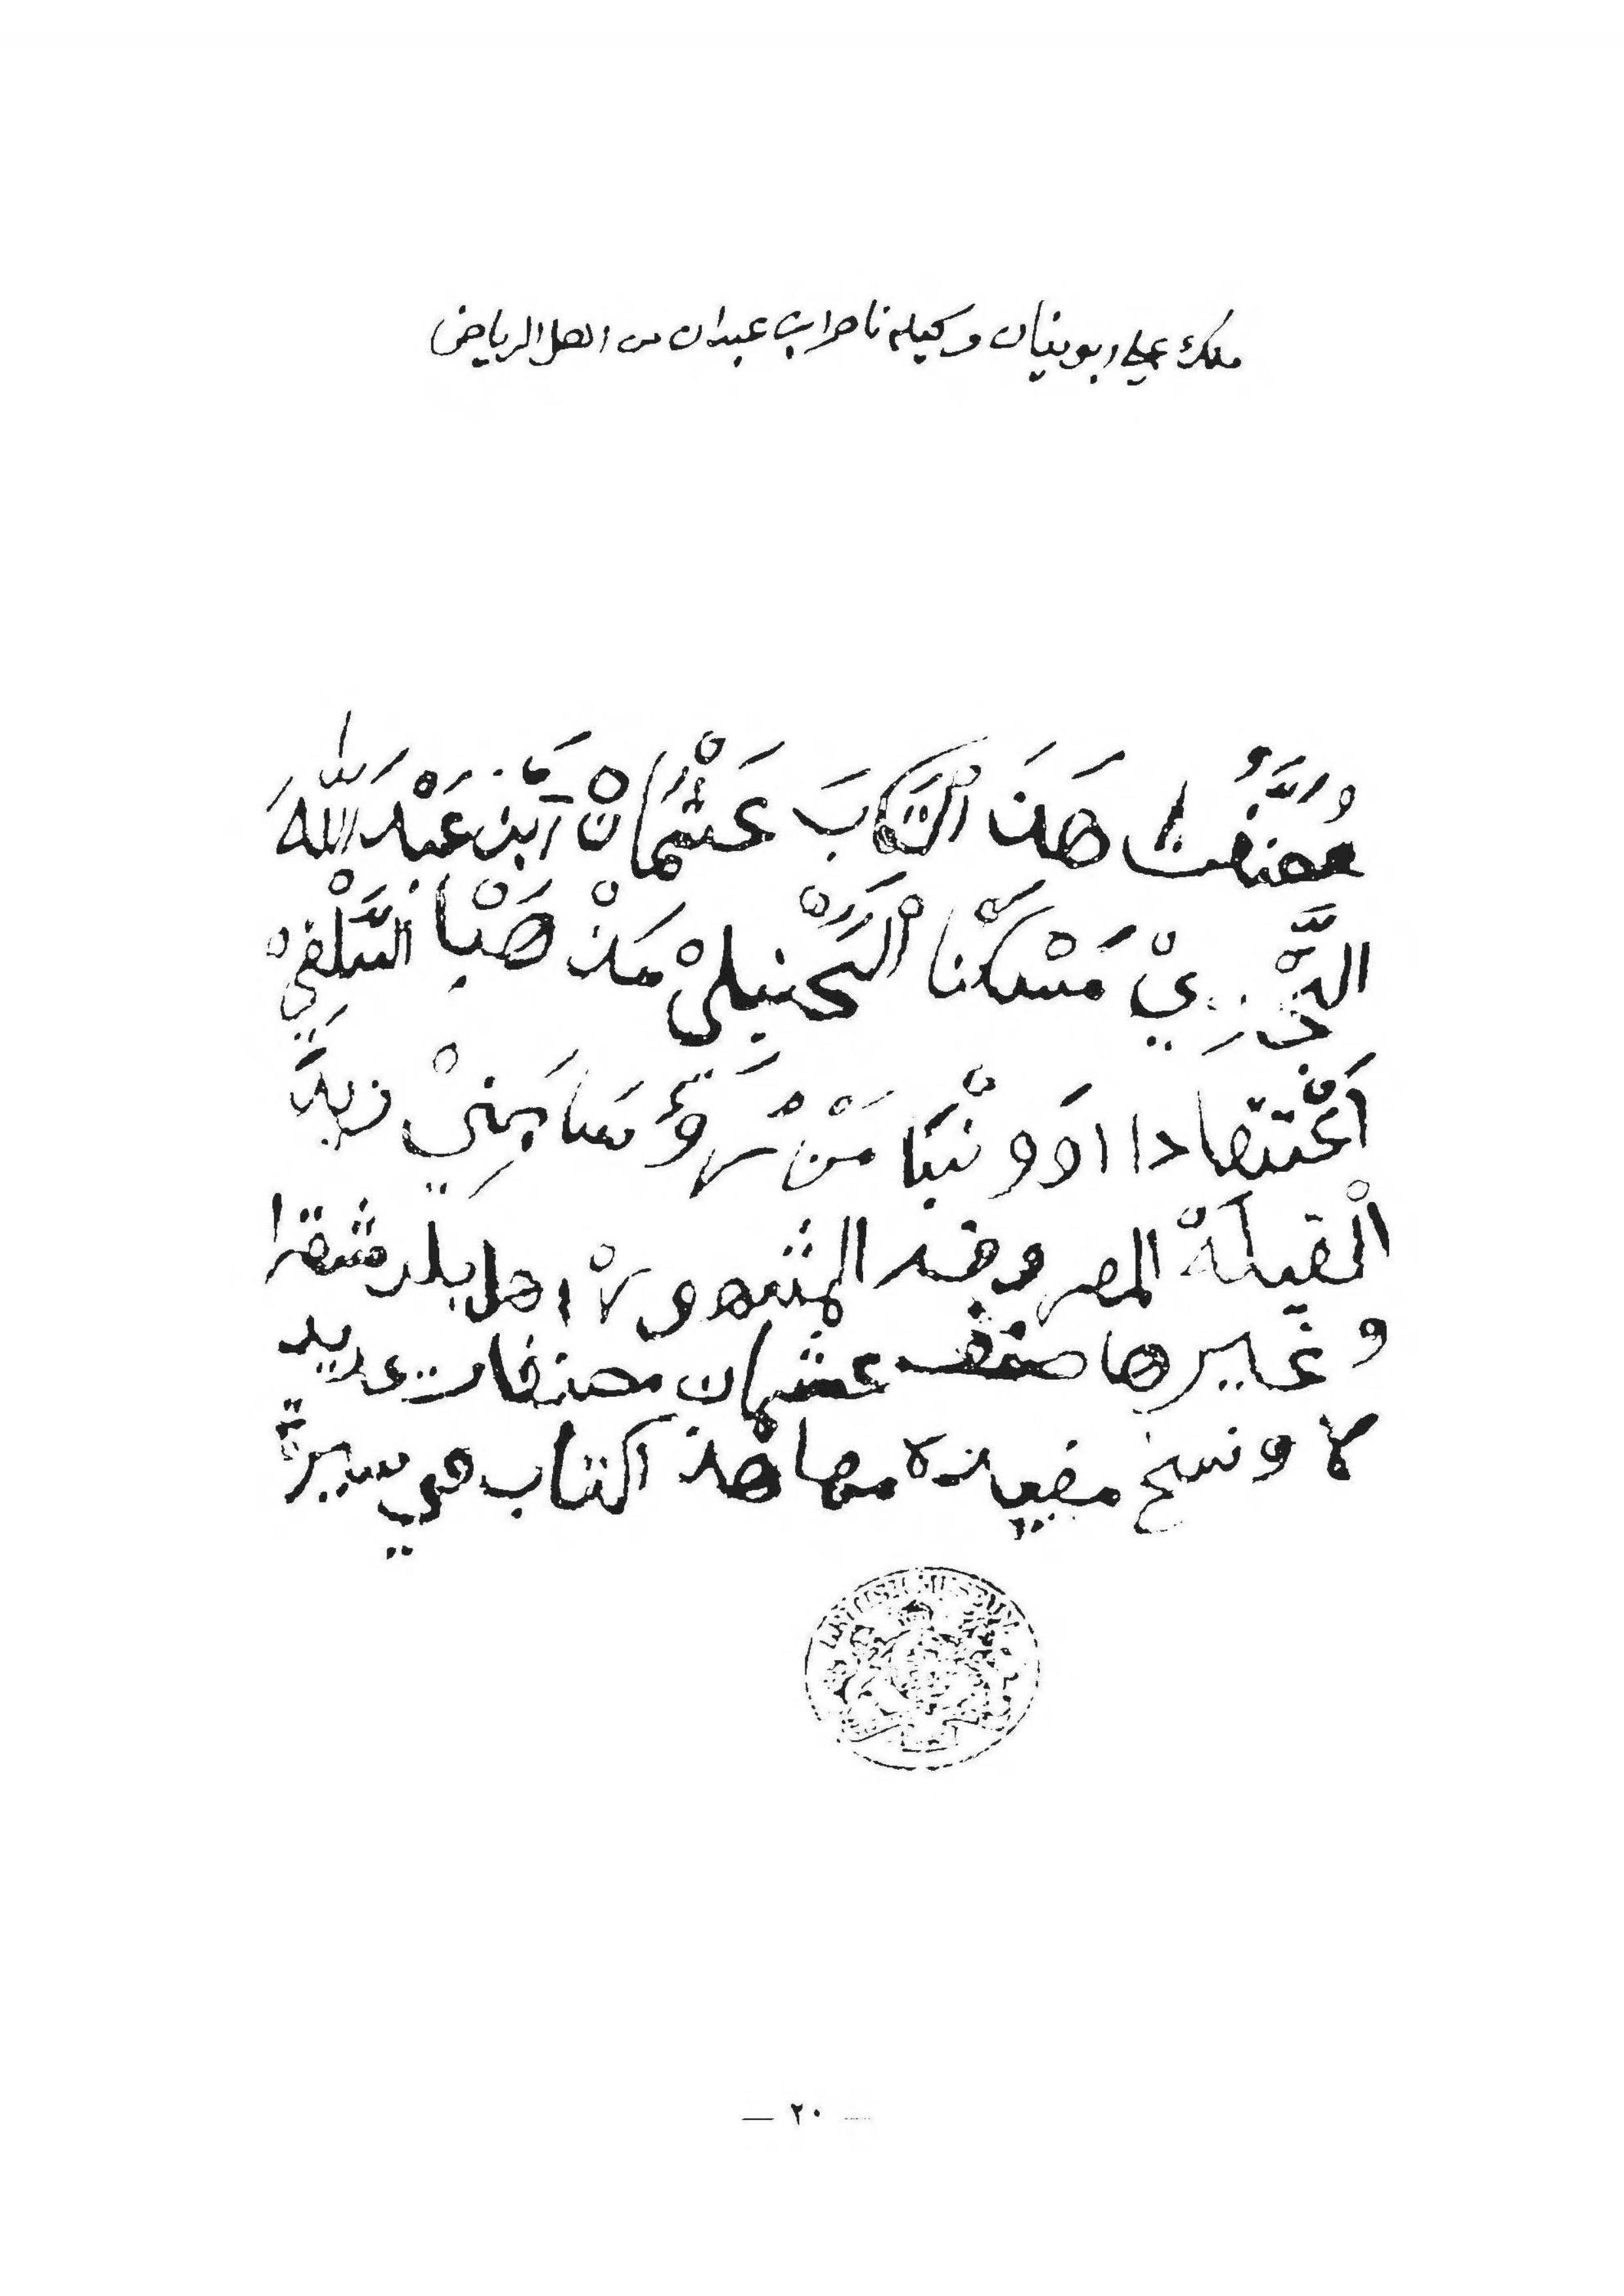 ملك علي ابو بنيان وكيله ناصر ابن عبدان من اهل الرياض
مُصَنَّفُ هَذَ الْكتَابَ عَثْمَانْ اَبْن عَبْدَ اللهَ
النَّجْدِيْ مَسْكْنا الْحَنْبَلِيْ مَذْهَبْا السَّلْفِيْ
اَعْتقادا اوَ ونْبَا مَنْ رُؤَسَا بَنِيْ زيدَ
الْقبيلَةْ المعروفه المشهورةْ اهل بلد شقرا
و غيرها صنف عثمان مصنفات عديد
لا ونسخ مفيده منها هذ الكتاب في سيرة
BRITISH MUSEUM
— ٢٠ —